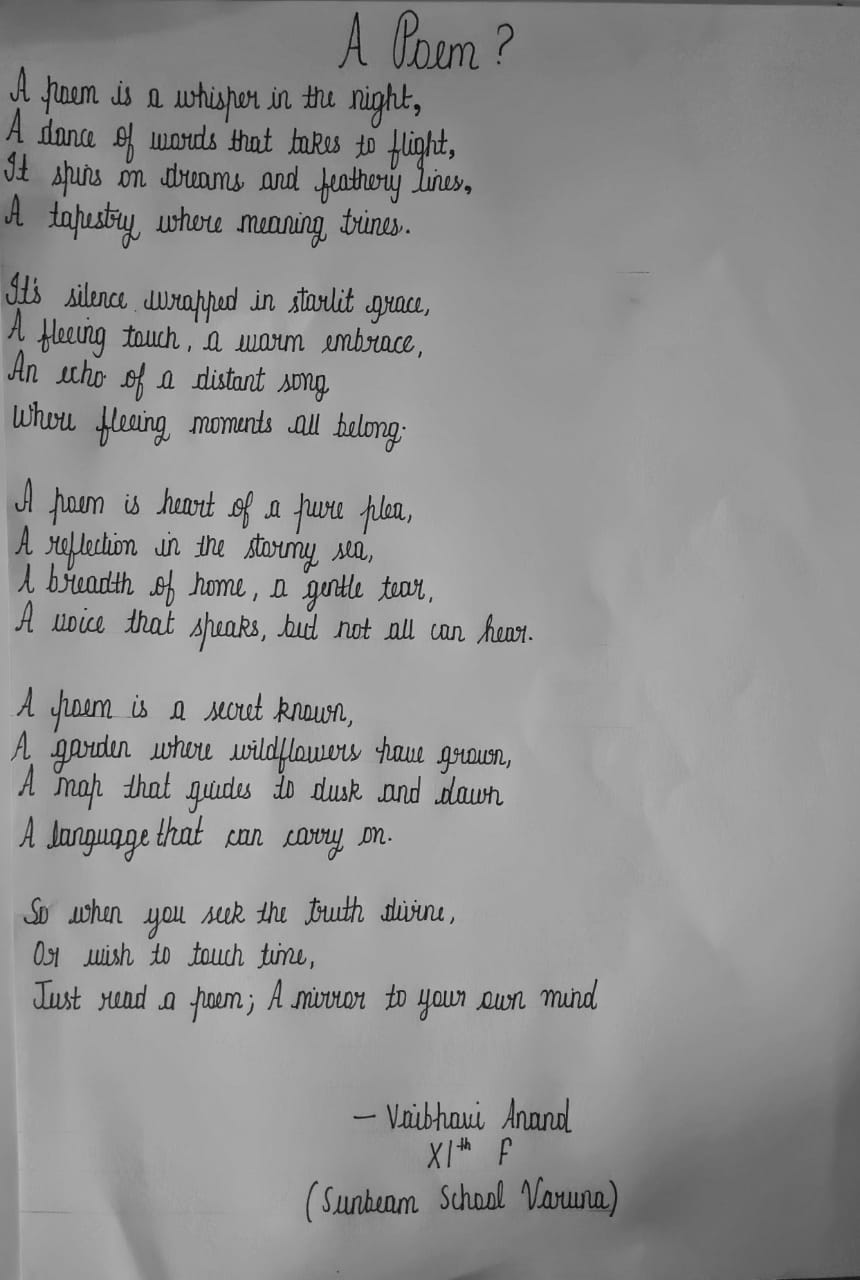 A Poem ?
A poem is a whisper in the night,
A dance of words that takes to flight,
It spins on dreams and feathery lines,
A tapestry where meaning trines.
It's silence wrapped in starlit grace,
A fleeing touch, a warm embrace,
An echo of a distant song
Where fleeing moments all belong.
A poem is heart of a pure plea,
A reflection in the stormy sea,
A breadth of home, a gentle tear,
A voice that speaks, but not all can hear.
A poem is a secret known,
A garden where wildflowers have grown,
A map that guides to dusk and dawn
A language that can carry on.
So when you seek the truth divine,
Or wish to touch time,
Just read a poem; A mirror to your own mind
- Vaibhavi Anand
XIth F
(Sunbeam School Varuna)